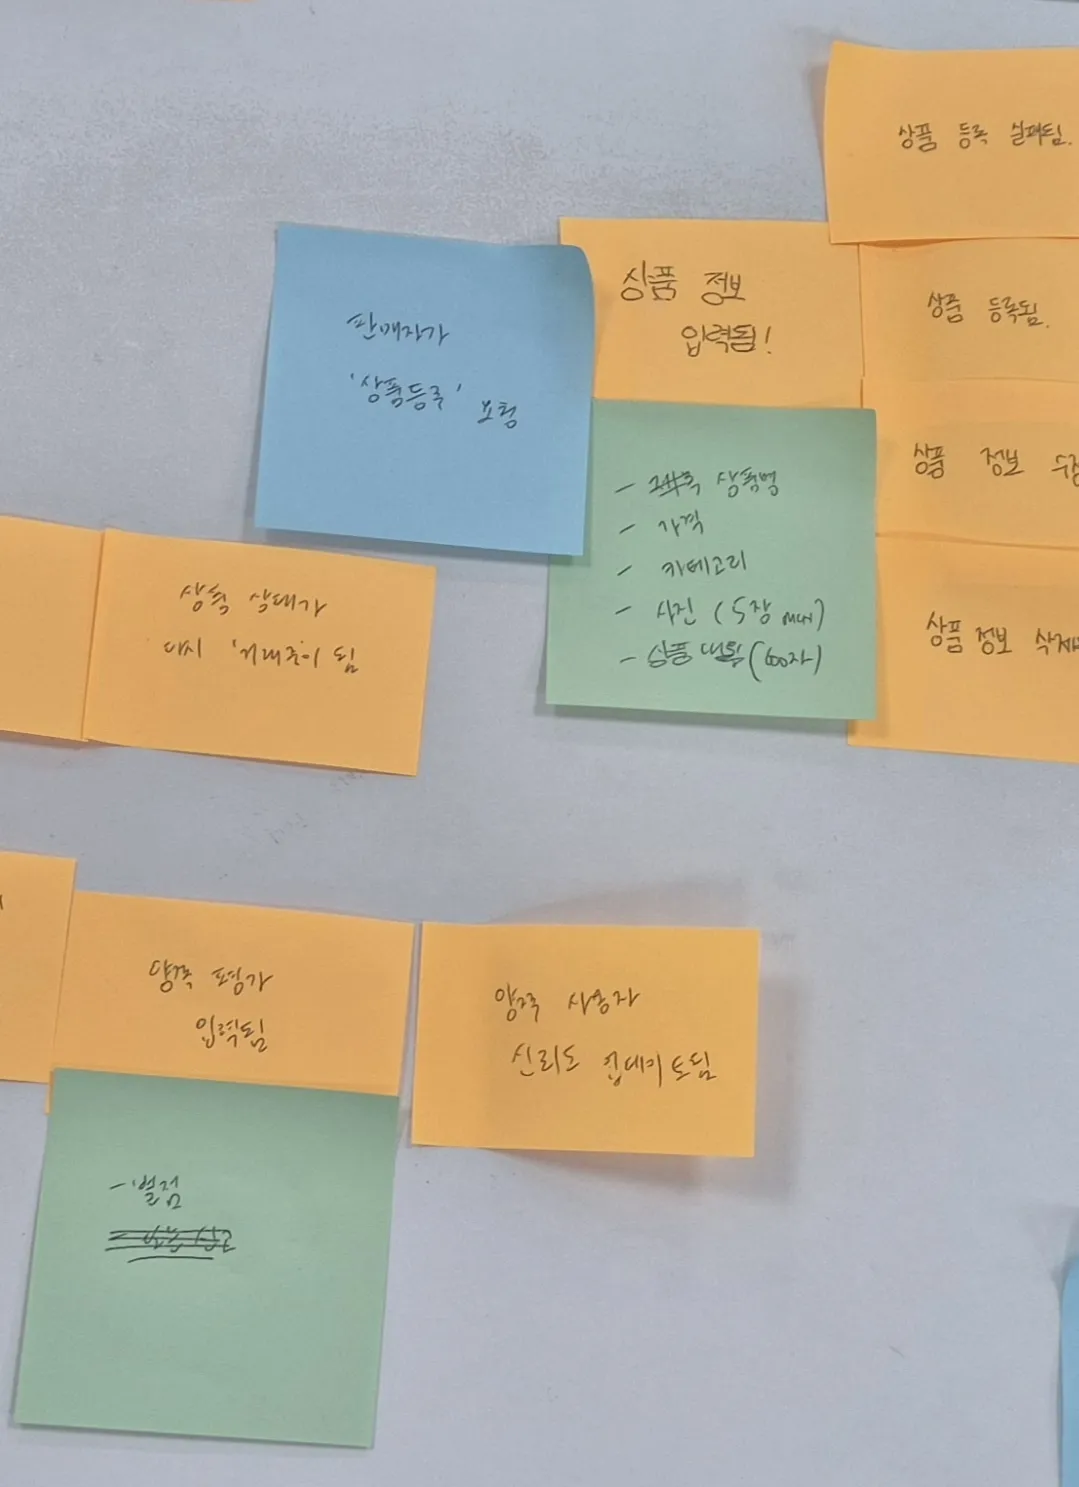 상품 등록 실패됨.
판매자가
'상품등록' 요청
상품 정보
입력됨!
상품 등록됨.
상품 정보
- 상품명
- 가격
- 카테고리
- 사진 (5장 max)
- 상품 (600자)
상품 정보 삭제
상품 상태가
다시 '거래중'이 됨
양쪽 평가
입력됨
- 별점
양쪽 사용자
신뢰도 업데이트됨